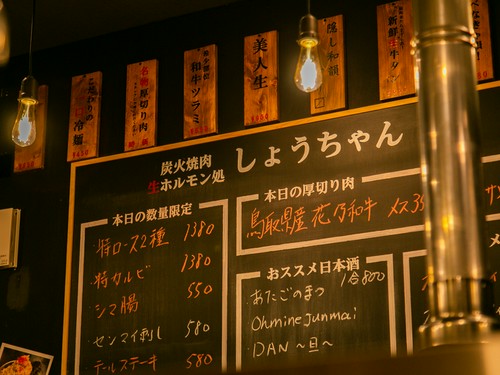 こだわりの
冷麺
名物
厚切り肉
和牛ツラミ
美人生
隠し和韻
新鮮生牛タン
炭火焼肉
生ホルモン処
しょうちゃん
本日の数量限定
特ロース2種 1380
特カルビ 1380
シマ腸 550
センマイ刺し 580
テールステーキ 580
本日の厚切り肉
鳥取県産 花乃和牛 メス
おススメ日本酒
あたごのまつ 1合800
Ohmine Junmai
DAN ~旦~